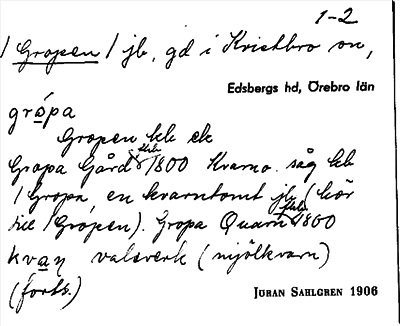 1-2
/ Gropen / jb, gd i Kvistbro sn,
Edsbergs hd, Örebro län
grópa
Gropen kb ek
Gropa Gård 1800 Kvarno. såg kb
/ Gropa, en kvarntomt jb (hör
till / Gropen). Gropa Quarn 1800
kvan valsverk (mjölkvarn)
(forts.)
JÖRAN SAHLGREN 1906